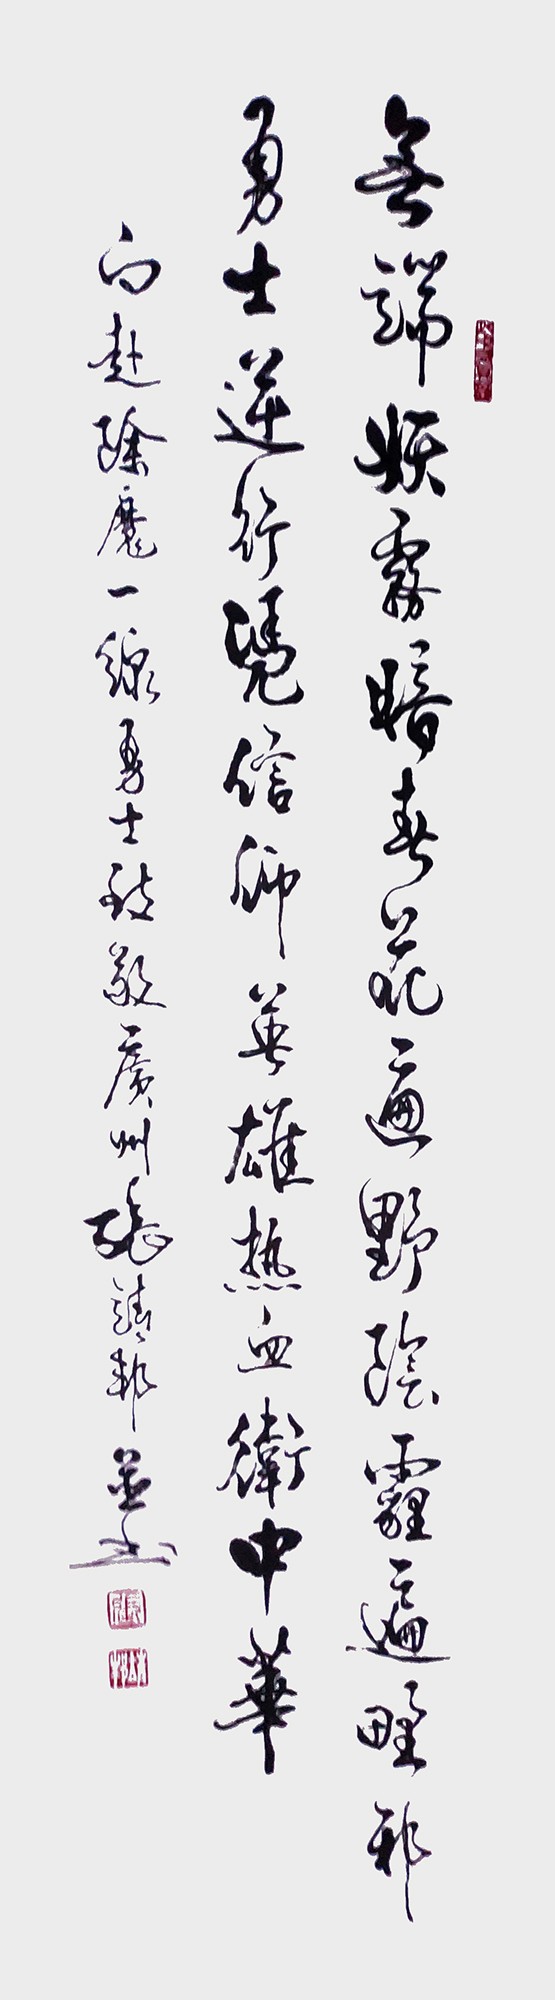 無端妖霧暗春花遍野陰霾遍野邪
勇士逆行憑信仰英雄熱血衛中華
向赴除魔一線勇士致敬廣州張靖邦並書